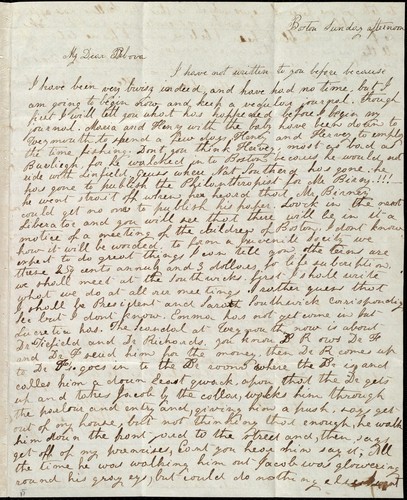 Boston Sunday afternoon
My Dear
I have not written to you before because
I have been very busy indeed, and have had no time, but I
am going to begin now and keep a regular journal, though
first I will tell you what has happened before I begin my
journal. Maria and Henry with the baby have been down to
Weymouth to spend a few days, Hanh and Hervey to employ
the time, take. Don't you think, Hervey most as bad as
Burleigh, for he walked in to Boston because he would not
ride with Linfield, Guess where Nat Southard has gone, he
has gone to publish the Philanthropist for Mr Birney!!!
he went strait off when he heard that Mr Birney
could get no one to publish his paper. Look in the next
Liberator and you will see that there will be in it a
notice of a meeting of the children of Boston. I dont know
how it will be worded. to form a juvenile society we
expect to do great things I can tell you the terms are
these 25 cents annuly and 3 dollars for life subscription.
we shall meet at the Southwicks first, I shall write
what we do at all our meetings. I rather guess that
I shall be President and Sarah Southwick corrisponding
sec but I dont know. Emma has not yet come in but
Lucretia has. The scandal at Weymouth now is about
Dr Fifield and Dr Richards. you know Dr R ows Dr F
and Dr F sued him for the money, then Dr R comes up
to Dr F, goes in to the room where the Dr is and
calls him a down Least quack, upon that the Dr gets
up and takes Jacob by the collar, walks him through
the parlour and entry and, giving him a push, says get
out of my house, but not thinking that enough, he walks
him down the front yard to the street and, then, says
get off of my premises, Cant you hear him say it, All
the time he was walking him out Jacob was glowering
round his gray eys, but could do nothing else